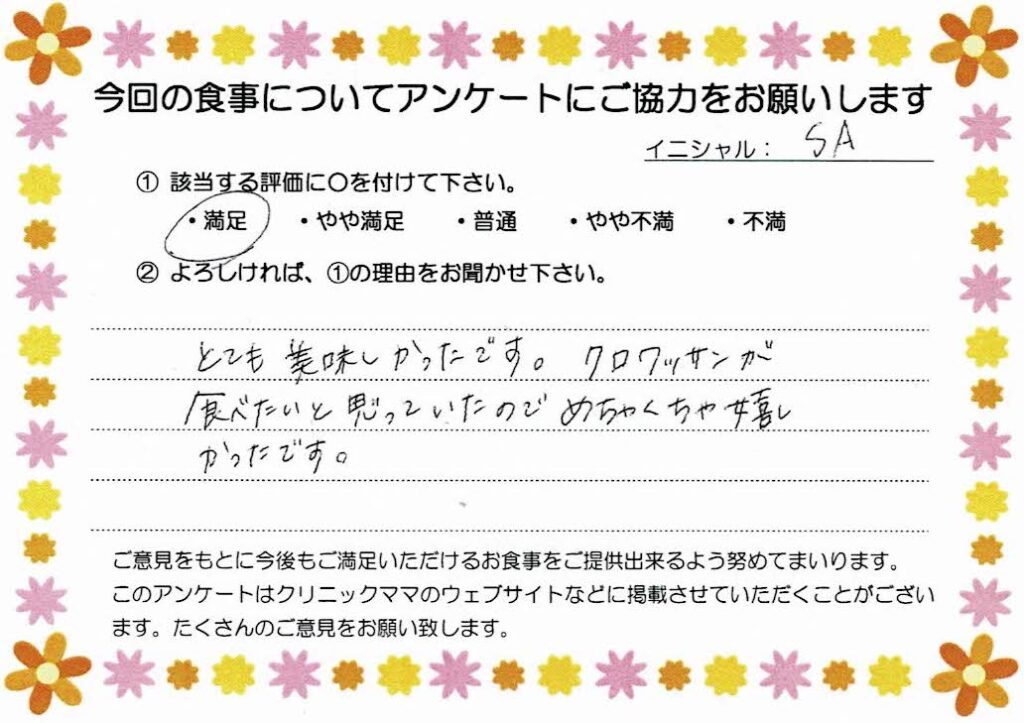 今回の食事についてアンケートにご協力をお願いします
イニシャル： SA
① 該当する評価に〇を付けて下さい。
・満足 ・やや満足 ・普通 ・やや不満 ・不満
② よろしければ、①の理由をお聞かせ下さい。
とても美味しかったです。クロワッサンが
食べたいと思っていたのでめちゃくちゃ嬉し
かったです。
ご意見をもとに今後もご満足いただけるお食事をご提供出来るよう努めてまいります。
このアンケートはクリニックママのウェブサイトなどに掲載させていただくことがござい
ます。たくさんのご意見をお願い致します。